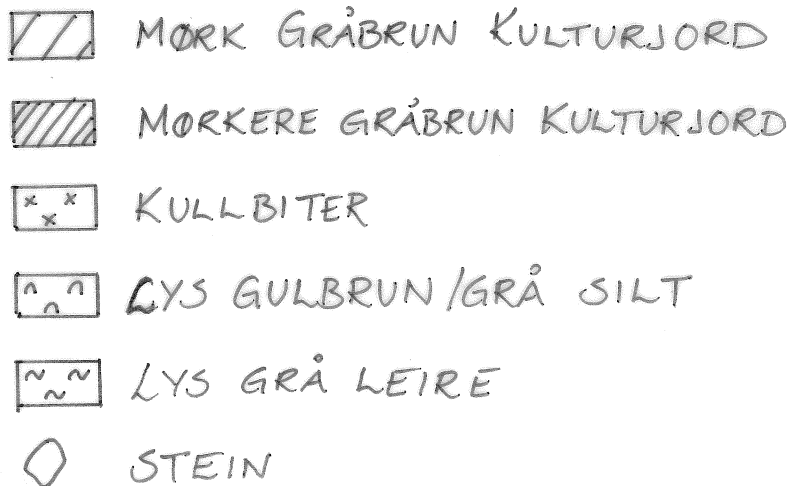 MØRK GRÅBRUN KULTURJORD
MØRKERE GRÅBRUN KULTURJORD
KULLBITER
LYS GULBRUN/GRÅ SILT
LYS GRÅ LEIRE
STEIN